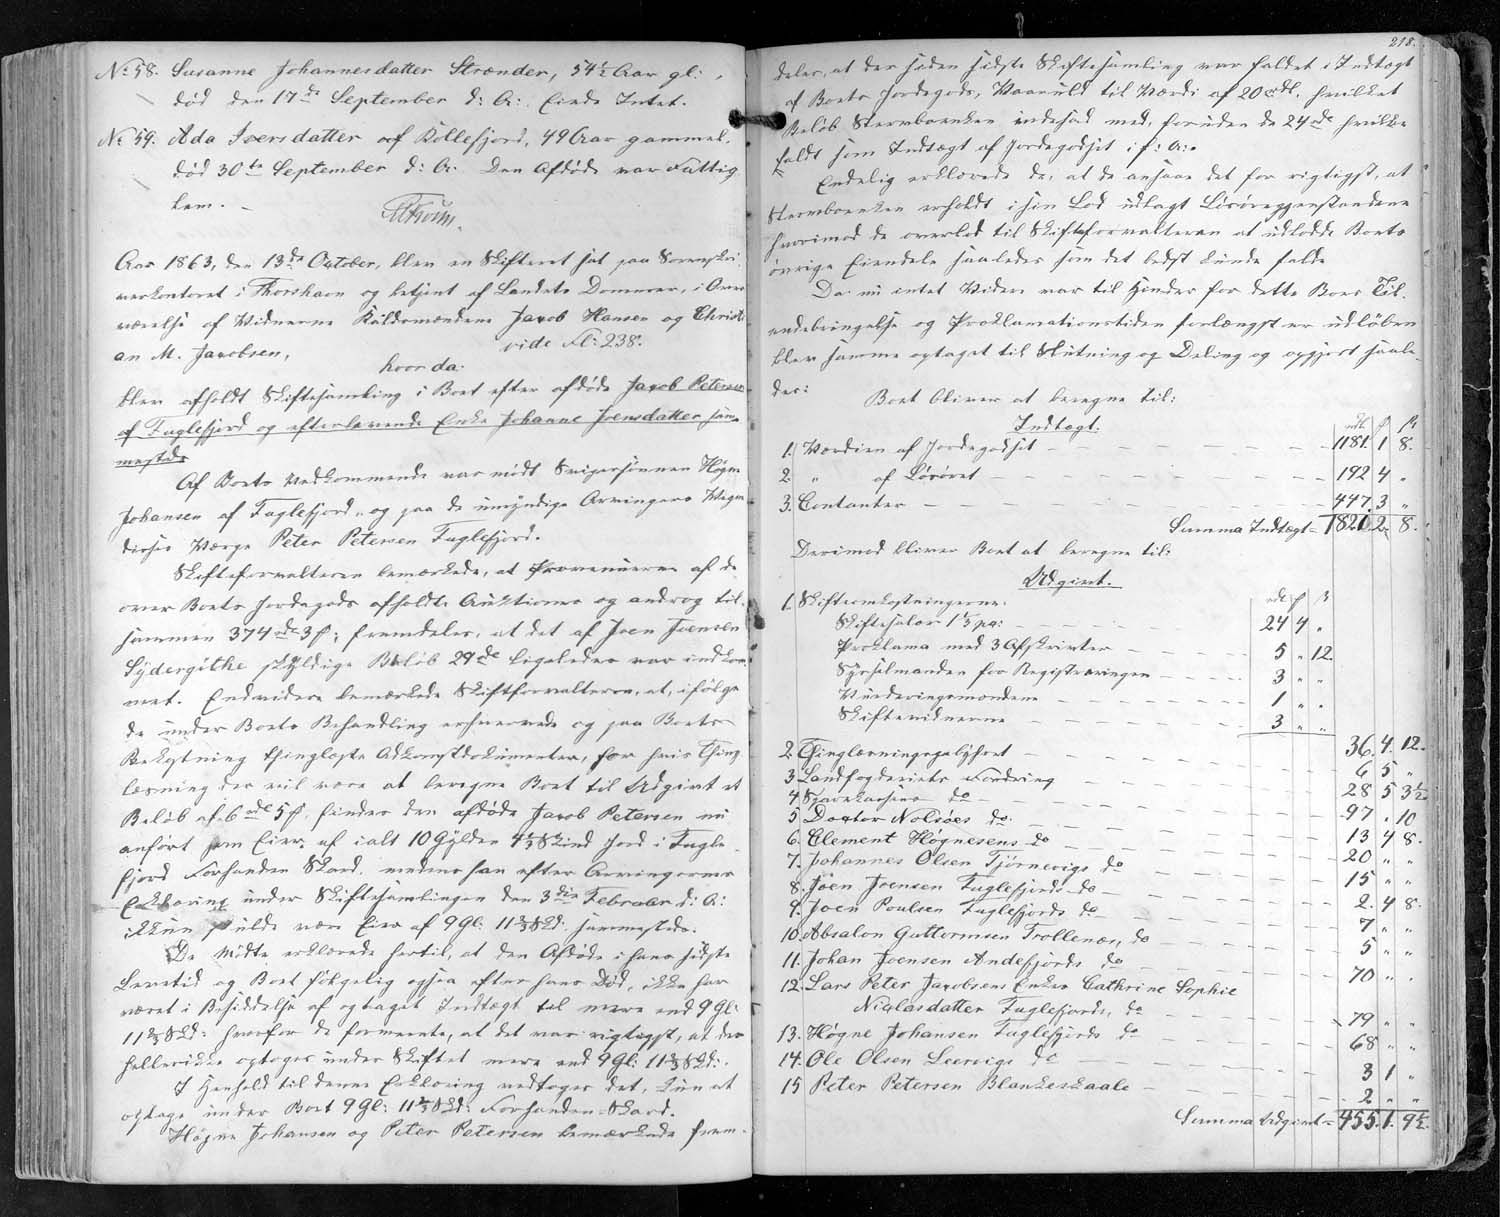 No 58. Susanne Johannesdatter Strænder, 54½ Aar gl:,
død den 17de September d: A: Eiede Intet.
No 59. Ada Iversdatter af Kollefjord, 49 Aar gammel.
død 30te September d: A: Den Afdøde var Fattig
lem. -
Aar 1863, den 13de October, blev en Skifteret sat paa Sorenskri-
verkontoret i Thorshavn og betjent af Landets Dommer, i Over
værelse af Vidnerne Kuldsmændene Jacob Hansen og Christi
an M. Jacobsen,
vide Fl: 238.
hvor da:
blev afholdt Skiftesamling i Boet efter afdøde Jacob Petersen
af Fuglefjord og efterlevende Enke Johanne Joensdatter sam-
mesteds
Af Boets Vedkommende var mødt Svigersønnen Høgne
Johansen af Fuglefjord, og paa de umyndige Arvingers Vegne
disses Værge Peter Petersen Fuglefjord.
Skifteforvalteren bemærkede, at Provenuerne af de
over Boets Jordegods afholdte Auktioner og androg til-
sammen 374 rdl 3 ƒ; fremdeles, at det af Joen Joensen
Sydergöthe skyldige Beløb 29 rdl ligeledes var indkom
met. Endvidere bemærkede Skifteforvalteren, at, ifølge
de under Boets Behandling erhvervede og paa Boets
Bekostning thinglæste Adkomstdokumenter, for hvis Thing
læsning der vil være at beregne Boet til Udgivt et
Beløb af 6 rdl 5 ƒ findes den afdøde Jacob Petersen nu
anført som Eier af ialt 10 Gylden 4⅔ Skind Jord i Fugle
fjord Forhanden Skard, medens han efter Arvingernes
Erklæring under Skiftesamlingen den 3die Februar d: A:
ikkun skulde være Eier af 9 Gl: 11⅔ Skd: sammesteds.
De Mødte erklærede hertil, at den Afdøde i hans sidste
Levetid og Boet følgelig ogsaa efter hans Død, ikke har
været i Besiddelse af og taget Indtægt til mere end 9 Gl:
11⅔ Skd: hvorfor de formente, at det var rigtigst, at der
hellerikke optoges under Skiftet mere end 9 Gl: 11⅔ Skd:.
I Henhold til denne Erklæring vedtoges det, kun at
optage under Boet 9 Gl: 11⅔ Skd: Forhanden-Skard.
Høgne Johansen og Peter Petersen bemærkede frem-
218.
deles, at der siden sidste Skiftesamling var faldet i Indtægt
af Boets Jordegods, Vaaruld til Værdi af 20 rdl. hvilket
Beløb Stervboenken indesad med, foruden de 24 rdl hvilke
faldt som Indtægt af Jordegodset i f: A:.
Endelig erklærede de, at de ansaae det for rigtigst, at
Stervboenken erholdt i sin Lod udlagt Løsøregjenstandene
hvorimod de overlod til Skifteforvalteren at udlodde Boets
øvrige Eiendele saaledes som det bedst kunde falde
Da nu intet Videre var til Hinder for dette Boes Til-
endebringelse og Proklamationstiden forlængst er udløben
blev samme optaget til Slutning og Deling og opgjort saale-
des:
Boet bliver at beregne til:
Indtægt.
rdl ƒ ſz
1. Værdien af Jordegodset - 1181. 1 8.
2. " af Løsøret - 192 4 "
3. Contanter - 447. 3 "
Summa Indtægt = 1821. 2. 8.
Derimod bliver Boet at beregne til:
Udgivt.
1. Skifteomkostningerne: rdl ƒ ſz
Skiftesalær 1⅓ pCt: - 24 4 "
Proklama med 3 Afskrivter - 5 " 12.
Sysselmanden for Registreringen - 3 " "
Vurderingsmændene - 1 " "
Skiftevidnerne - 3 " "
36. 4. 12.
2. Thinglæsningsgebyhret - 6 5 "
3. Landfogderiets Fordring - 28 5 3½
4. Sparekassens do - 97 . 10
5 Doctor Nolsøes do. - 13 4 8.
6. Clement Høgnesens do - 20 " "
7. Johannes Olsen Tjørnevigs do - 15 " "
8. Joen Joensen Fuglefjords do - 2. 4 8.
9. Joen Poulsen Fuglefjords do - 7 " "
10. Absalon Guttormsen Trollenæs, do - 5 " "
11. Johan Joensen Andefjords do - 70 " "
12. Lars Peter Jacobsens Enke Cathrine Sophie
Niclasdatter Fuglefjords, do - 79 " "
13. Høgne Johansen Fuglefjords do - 68 " "
14. Ole Olsen Leervigs do - 3 1 "
15 Peter Petersen Blankeskaale - 2 " "
Summa Udgivt = 455. 1. 9½.